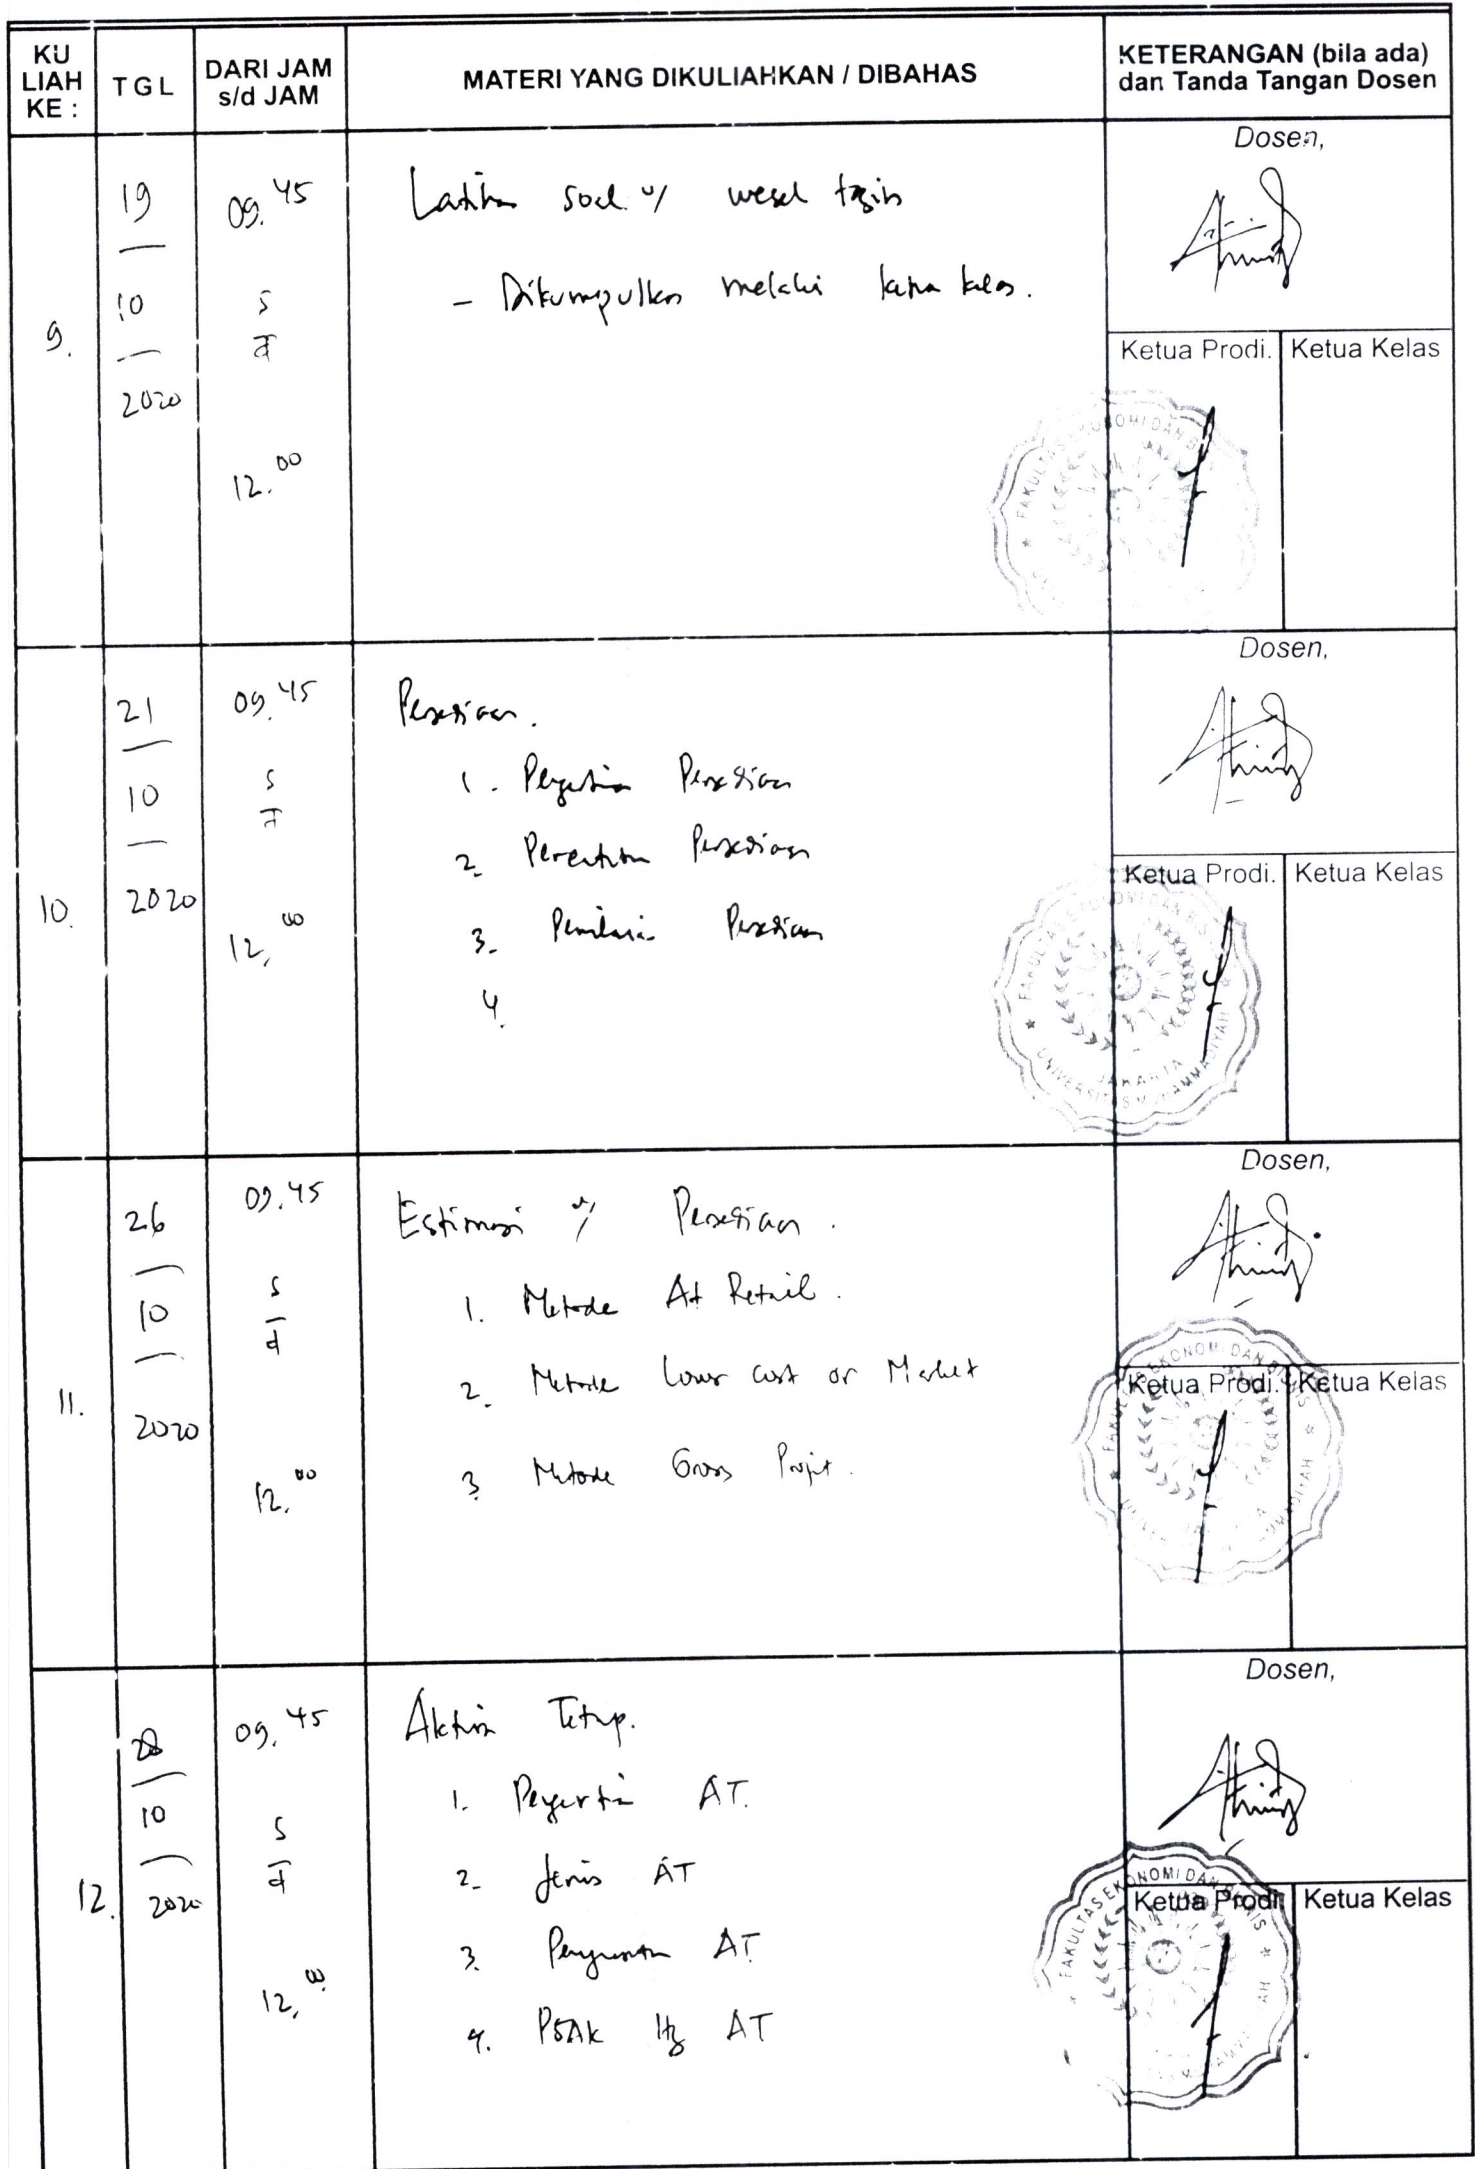 KU LIAH KE :
TGL
DARI JAM s/d JAM
MATERI YANG DIKULIAHKAN / DIBAHAS
KETERANGAN (bila ada) dan Tanda Tangan Dosen
9.
19
10
2020
09.45
s
d
12.00
Latihan soal u/ wesel tagih
- Dikumpulkan melalui ketua kelas.
Dosen,
Ketua Prodi.
Ketua Kelas
FAKULTAS EKONOMI DAN
10.
21
10
2020
09.45
s
d
12.00
Persediaan.
1. Pengertian Persediaan
2. Pencatatan Persediaan
3. Penilaian Persediaan
4.
Dosen,
Ketua Prodi.
Ketua Kelas
FAKULTAS EKONOMI DAN BIS
UNIVERSITAS MUHAMMADIYAH
JAKARTA
11.
26
10
2020
09.45
s
d
12.00
Estimasi u/ Persediaan.
1. Metode At Retail.
2. Metode Lower cost or Market
3. Metode Gross Profit.
Dosen,
Ketua Prodi.
Ketua Kelas
FAKULTAS EKONOMI DAN BISNIS
12.
28
10
2020
09.45
s
d
12.00
Aktiva Tetap.
1. Pengertian AT.
2. Jenis AT
3. AT
4. PSAK ttg AT
Dosen,
Ketua Prodi
Ketua Kelas
FAKULTAS EKONOMI DAN BISNIS